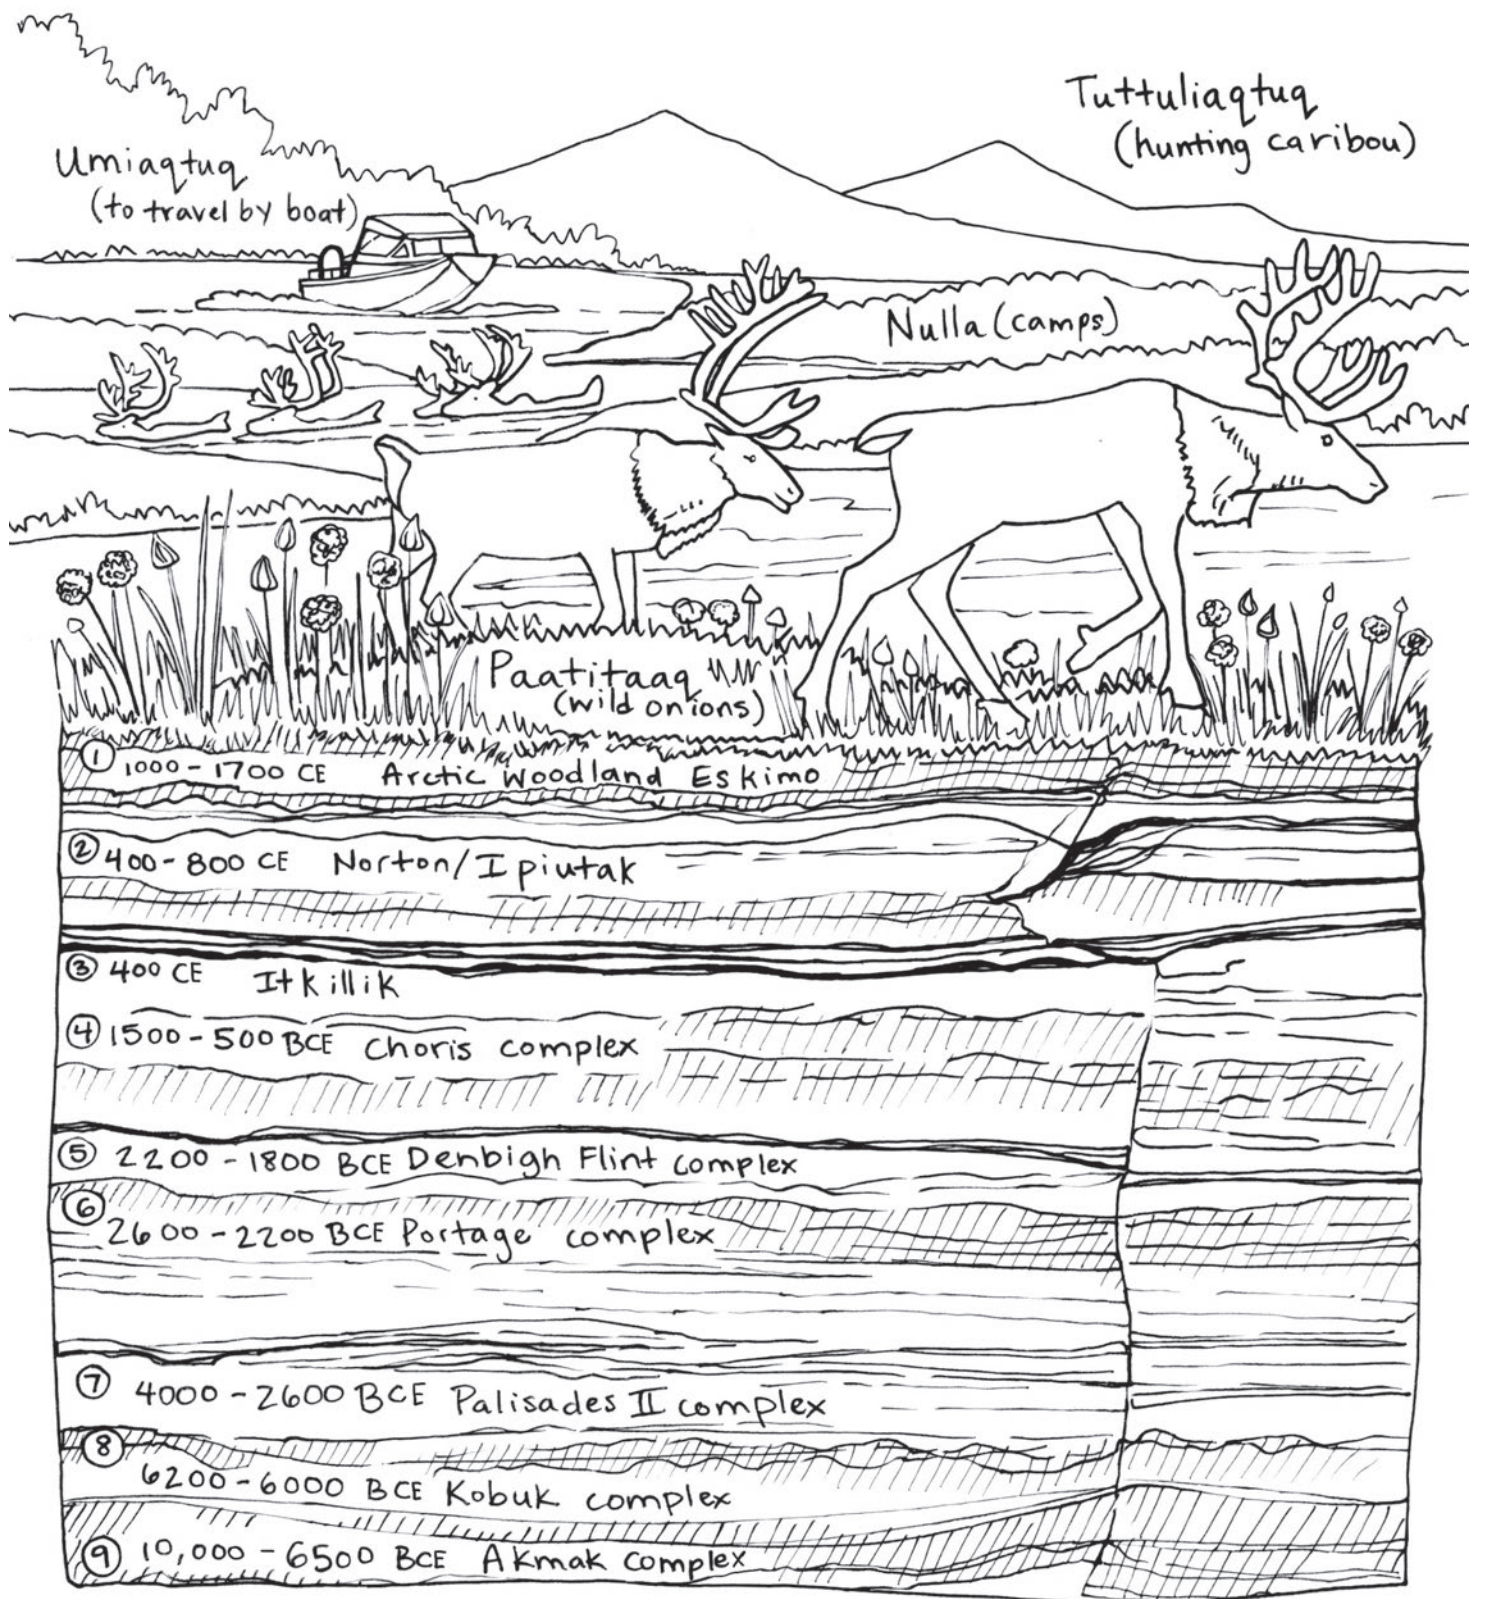 Tuttuliaqtuq
(hunting caribou)
Umiaqtuq
(to travel by boat)
Nulla (camps)
Paatitaaq
(wild onions)
1
1000 - 1700 CE Arctic Woodland Eskimo
2 400 - 800 CE Norton/Ipiutak
3 400 CE Itkillik
4 1500 - 500 BCE Choris complex
5 2200 - 1800 BCE Denbigh Flint complex
6
2600 - 2200 BCE Portage complex
7 4000 - 2600 BCE Palisades II complex
8
6200 - 6000 BCE Kobuk complex
9 10,000 - 6500 BCE Akmak complex